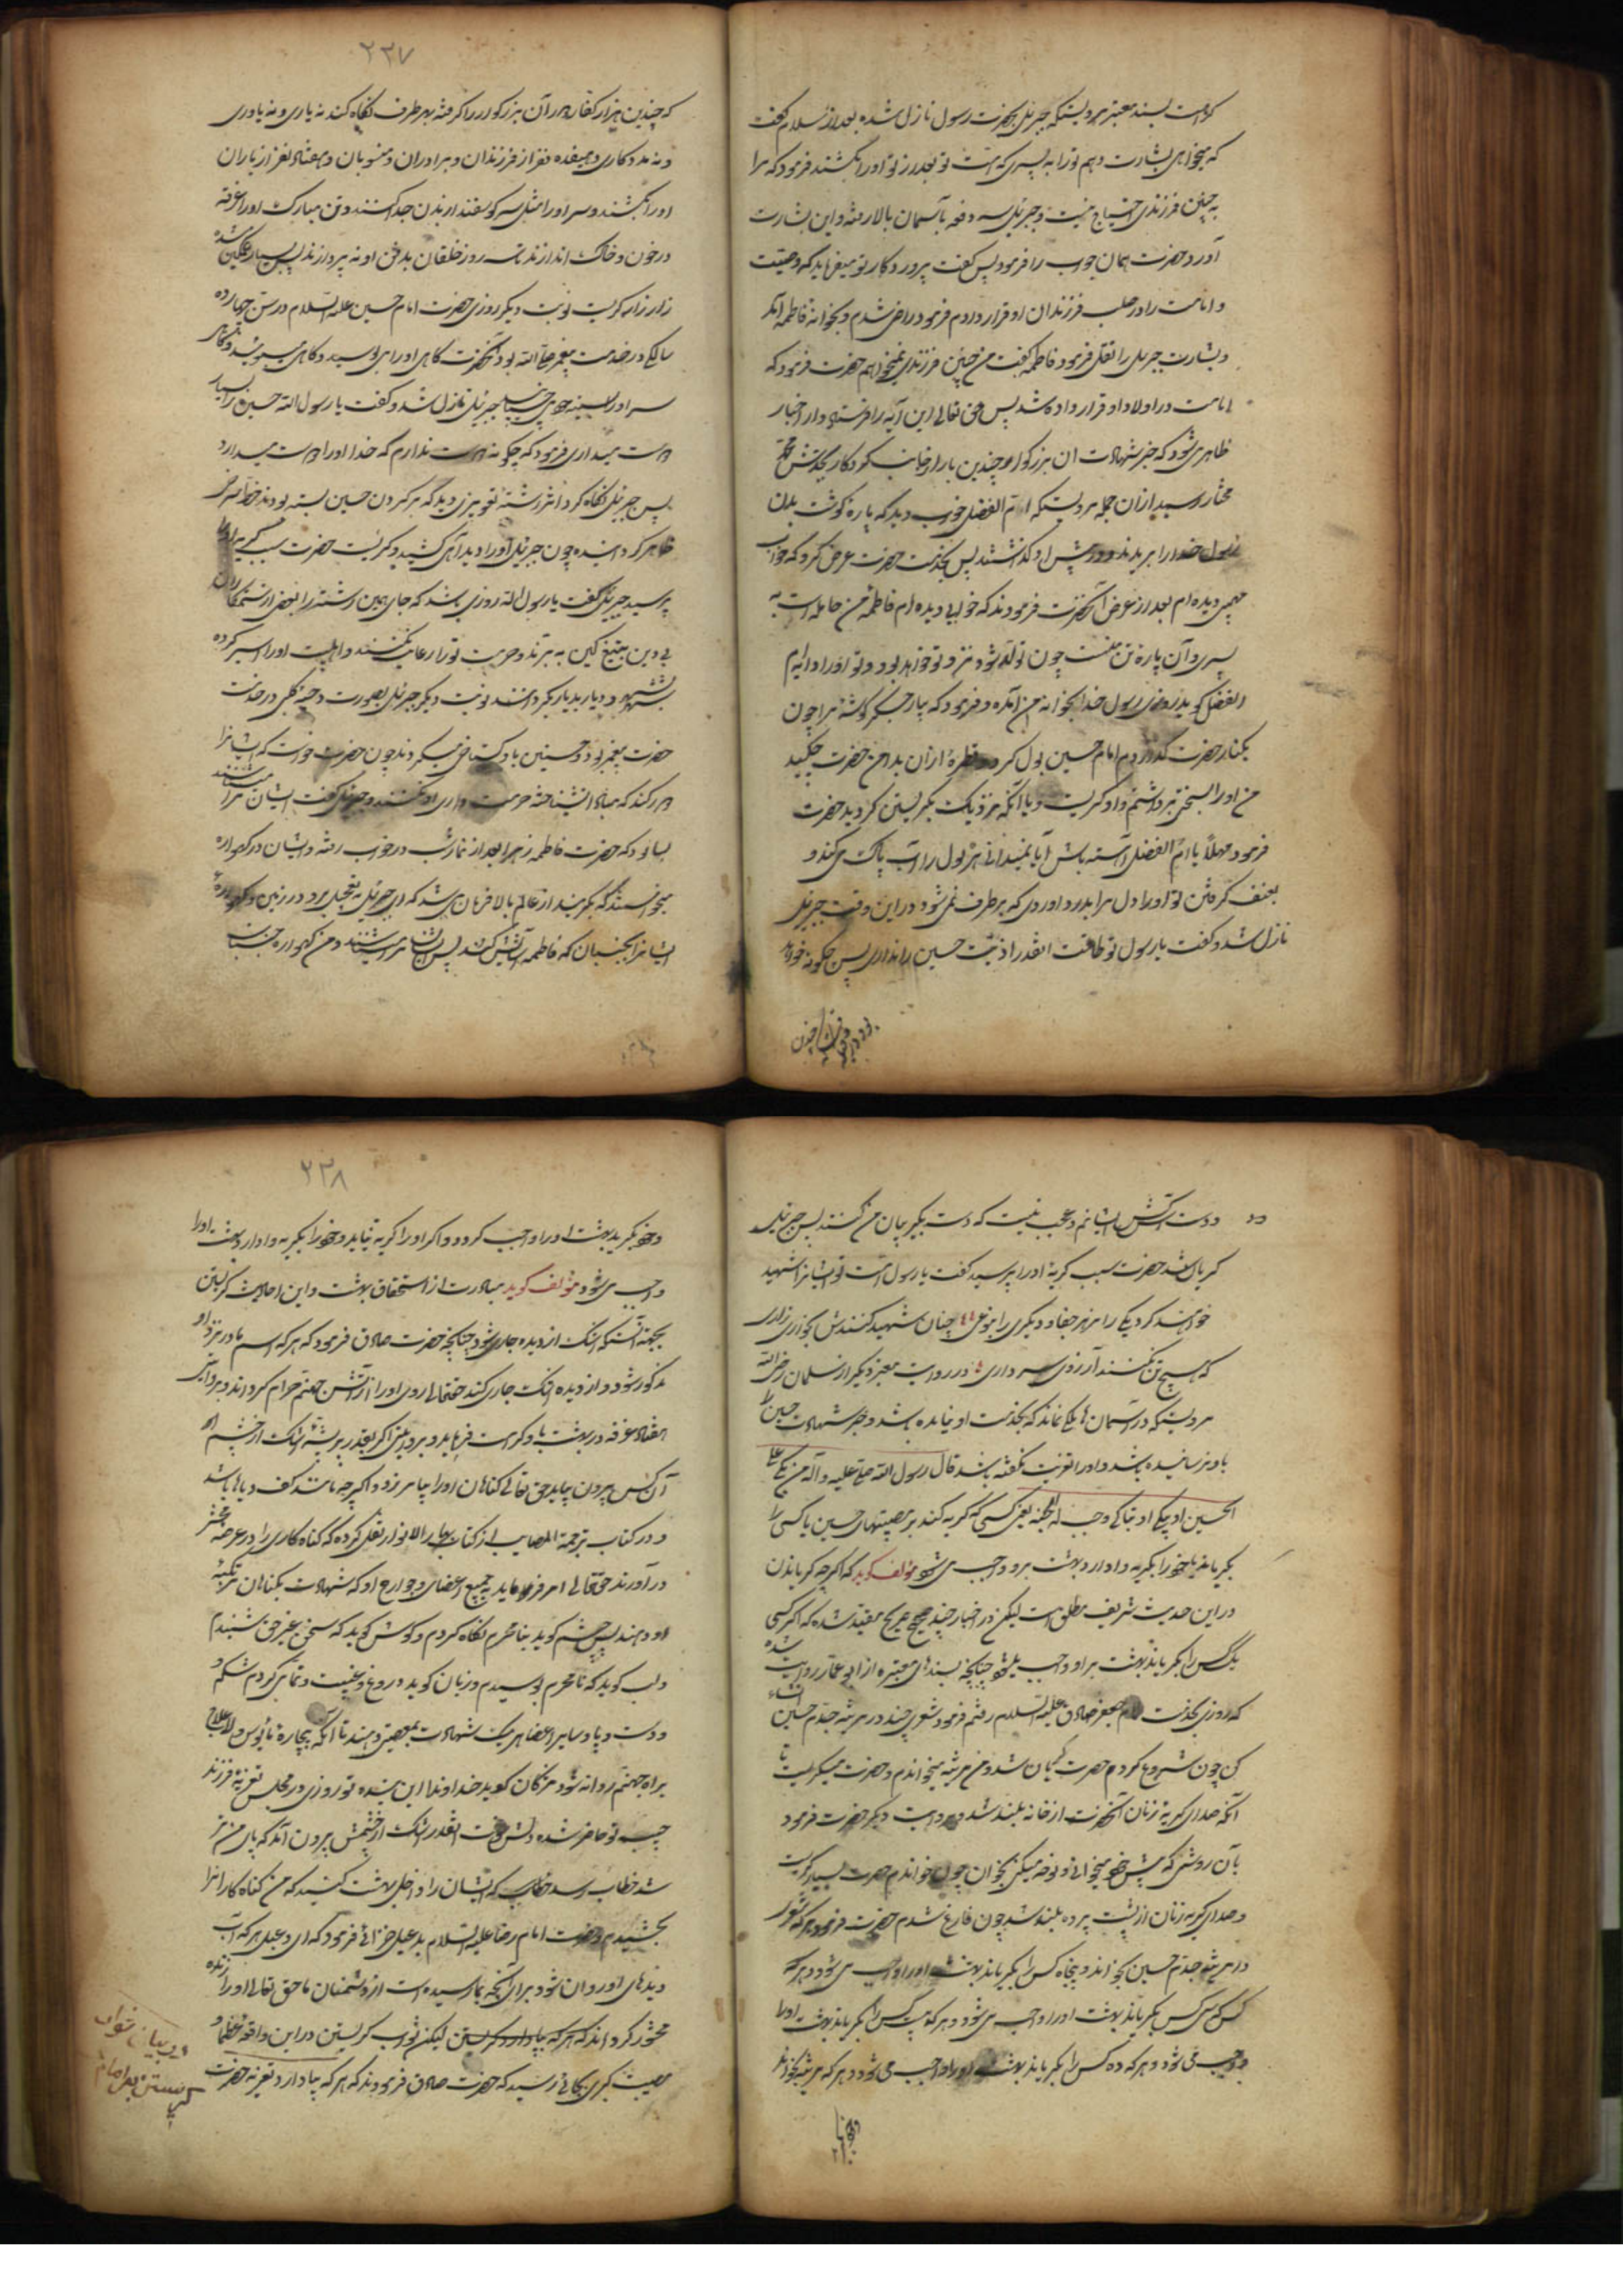 کرامت بسند معتبر مرویستکه جبرئیل بحضرت رسول نازل شده بعد از سلام گفت
که میخواهی بشارت دهم ترا به پسری که امت تو بعد از تو او را بکشند فرمود که مرا
به چنین فرزندی احتیاج نیست و جبرئیل سه دفعه بآسمان بالا رفته و این بشارت
آورد و حضرت همان جواب را فرمود پس گفت پروردگار تو میفرماید که وصیت
و امامت را در صلب فرزندان او قرار دادم فرمود راضی شدم و بخانه فاطمه آمد
و بشارت جبرئیل را نقل فرمود فاطمه گفت من چنین فرزندی نمیخواهم حضرت فرمود که
امامت در اولاد او قرار داده شد پس حق تعالی این آیه را فرستاد و از اخبار
ظاهر می شود که خبر شهادت آن بزرگوار چندین بار از جانب کردکار بجدش محمد
مختار رسید از آن جمله مرویستکه ام الفضل خواب دید که پاره گوشت بدن
رسول خدا را بریدند و در پیش او گذاشتند پس بخدمت حضرت عرض کرد که خواب
مهمی دیده ام بعد از عرض آنحضرت فرمودند که خوابی دیده ام فاطمه من حامله است به
پسری و آن پاره تن منست چون تولد شود نزد تو خواهد بود و تو او را دایه ام
الفضل گوید روزی رسول خدا بخانه من آمده و فرمود که بیار جگر گوشه مرا چون
بکنار حضرت گذاردم امام حسین بول کرد و قطره از آن بدامن حضرت چکید
من او را بسختی برداشتم و او گریست و با آنکه نزدیک بگریستن گردید حضرت
فرمود مهلاً یا ام الفضل آهسته باش آیا نمیدانی هر بول را آب پاک می کند و
بعنف گرفتن تو او را دل مرا بدرد آورد که برطرف نمی شود در این وقت جبرئیل
نازل شد و گفت یا رسول تو طاقت اینقدر اذیت حسین را نداری پس چگونه خواهد
۲۳۷
که چندین هزار کفار در آن بزرگوار را گرفته بهر طرف نگاه کند نه یاری و نه یاوری
و نه مددکاری و هیفده نفر از فرزندان و برادران و منسوبان و هفتاد نفر از یاران
او را بکشند و سر او را مثل سر گوسفند از بدن جدا کنند و تن مبارک او را غرقه
در خون و خاک اندازند تا سه روز خلقان بدفن او نه پردازند پس بسیار غمگین شده
زار زار گریست نوبت دیگر روزی حضرت امام حسین علیه السلام در سن چهارده
سالگی در خدمت پیغمبر صلی الله بود آنحضرت گاهی او را می بوسید و گاهی می بوئید و گاهی
سر او را بسینه می چسپانید جبرئیل نازل شد و گفت یا رسول الله حسین را بسیار
دوست میداری فرمود که چگونه دوست ندارم که خدا او را دوست میدارد
پس جبرئیل نگاه کرد اثر رشته تعویزی دید که بر گردن حسین بسته بودند
ظاهر گردانیده چون جبرئیل او را دید آهی کشید و گریست حضرت سبب گریه او را
پرسید جبرئیل گفت یا رسول الله روزی باشد که جای همین رشته را بعضی از ستمکاران
بی دین بتیغ کین به برند و حرمت ترا رعایت نکنند و اهلبیت او را اسیر کرده
شهر بشهر و دیار بدیار بگردانند نوبت دیگر جبرئیل بصورت دحیه کلبی در خدمت
حضرت پیغمبر بود و حسنین با او گستاخی میکردند چون حضرت خواست که ایشانرا
دور کند که مبادا نشناخته حرمت داری او نکنند جبرئیل گفت ایشان مرا میشناسند
بسا بود که حضرت فاطمه زهرا بعد از نماز شب در خواب رفته و ایشان در گهواره
میخواستند که بگریند از عالم بالا فرمان می شد که ای جبرئیل بتعجیل برو در زمین و گهواره
ایشانرا بجنبان که فاطمه آسایش کند پس ایشان مرا میشناسند و من گهواره جنبان
دودست کش ایشانم و عجب نیست که دست بگریبان من کنند پس جبرئیل
گریان شد حضرت سبب گریه او را پرسید گفت یا رسول امت تو ایشانرا شهید
خواهند کرد یکی را بزهر جفا و دیگری را بنوعی چنان شهید کنندش بخواری زاری
که هیچ تن نکنند آرزوی سرداری و در روایت معتبر دیگر از سلمان رضی الله
مرویستکه در آسمان ها ملکی نماند که بخدمت او نیامده باشد و خبر شهادت حسین را
باو نرسانیده باشد و او را تعزیت نگفته باشد قال رسول الله صلی علیه و آله من بکی علی
الحسین او ابکی او تباکی وجبت له الجنة یعنی کسی که گریه کند بر مصیبتهای حسین یا کسی را
بگریاند یا خود را بگریه وا دارد بهشت برو واجب می شود مؤلف گوید که اگرچه گریاندن
در این حدیث شریف مطلق است لیکن در اخبار چند صحیح صریح مقید شده که اگر کسی
یک کس را بگریاند بهشت بر او واجب میشود چنانچه بسندهای معتبره از ابی عمار روایت شده
که روزی بخدمت امام جعفر صادق علیه السلام رفتم فرمود شعری چند در مرثیه جدم حسین انشاء
کن چون شروع کردم حضرت گریان شد و من مرثیه میخواندم و حضرت میگریست تا
آنکه صدای گریه زنان آنحضرت از خانه بلند شد و بروایت دیگر حضرت فرمود
بآن روش که پیش خود میخوانی و نوحه میکنی بخوان چون خواندم حضرت بسیار گریست
و صدای گریه زنان از پشت پرده بلند شد چون فارغ شدم حضرت فرمود هر که شعر
در مرثیه جدم حسین بخواند و پنجاه کس را بگریاند بهشت او را واجب می شود و هر که
سی کس بگریاند بهشت او را واجب می شود و هر که بیست کس را بگریاند بهشت او را
واجب می شود و هر که ده کس را بگریاند بهشت او را واجب می شود و هر که مرثیه بخواند
۲۳۸
و خود بگرید بهشت او را واجب گردد و اگر او را گریه نیاید و خود را بگریه وا دارد بهشت او را
واجب می شود مؤلف گوید مبادرت از استحقاق بهشت و این احادیث گریستن
بجهة آنستکه اشک از دیده جاری شود چنانچه حضرت صادق فرمود که هر که اسم ما در نزد او
مذکور شود و از دیده اشک جاری کند حقتعالی روی او را از آتش جهنم حرام گرداند و بروایتی
هفتاد غرفه در بهشت باو کرامت فرماید و بروایتی اگر بقدر پر پشه اشک از چشم
آن کس بیرون بیاید حق تعالی گناهان او را بیامرزد و اگرچه مانند کف دریاها باشد
و در کتاب ترجمة المصایب از کتاب بحار الانوار نقل کرده که گناه کاری را در عرصه محشر
در آورند حق تعالی امر فرماید به جمیع اعضای و جوارح او که شهادت بگناهان
او دهند پس چشم گوید بنا محرم نگاه کردم و گوش گوید که سخن غیر حق شنیدم
و لب گوید که نا محرم بوسیدم و زبان گوید دروغ و غیبت و تمامی کردم شکم و
و دست و پا و سایر اعضا هر یک شهادت بمعصیتی دهند تا آنکه بیچاره مأیوس و لاعلاج
براه جهنم روانه شود مژگان گوید خداوندا این بنده تو روزی در مجلس تعزیه فرزند
حبیب تو حاضر شده دلش سوخت اینقدر اشک از چشمش بیرون آمد که پای من تر
شد خطاب رسد که ایشان را داخل بهشت کنید که من گناه کارانرا
بخشیدم و حضرت امام رضا علیه السلام بدعبل خزائی فرمود که ای دعبل هر که آب
دیدهای او روان شود برای آنچه بما رسیده است از دشمنان ما حق تعالی او را زنده
محشور گرداند که هر که بپا دارد گریستن لیکن ثواب گریستن در این واقعه عظما و
مصیبت کبری بجائی رسید که حضرت صادق فرمودند که هر که بپا دارد تعزیه حضرت
در بیان ثواب
گریستن بر امام